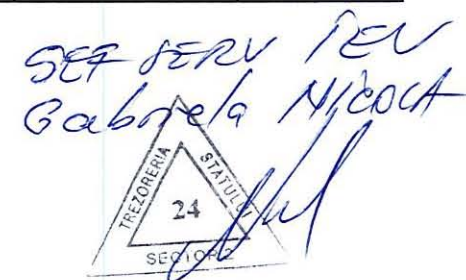 SEF SERV TEV
Gabriela NICOLA
TREZORERIA
STATULUI
24
SECTOR 2